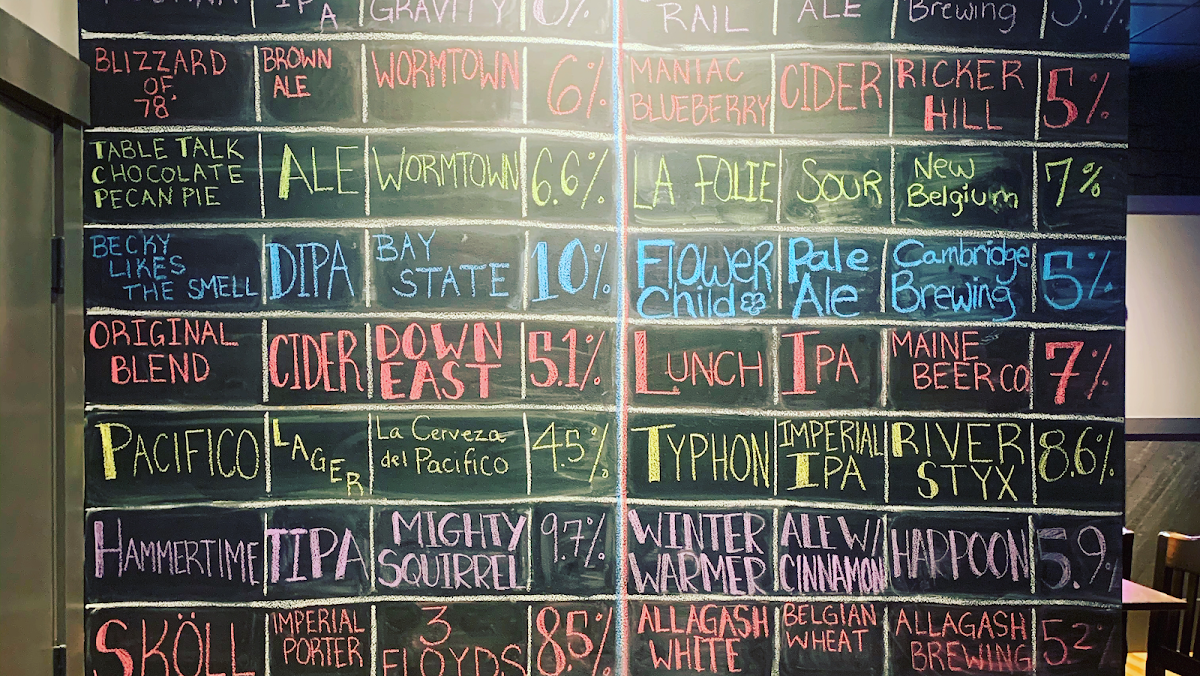 IPA GRAVITY 0% RAIL ALE Brewing
BLIZZARD OF 78' BROWN ALE WORMTOWN 6% MANIAC BLUEBERRY CIDER RICKER HILL 5%
TABLE TALK CHOCOLATE PECAN PIE ALE WORMTOWN 6.6% LA FOLIE SOUR New Belgium 7%
BECKY LIKES THE SMELL DIPA BAY STATE 10% Flower Child Pale Ale Cambridge Brewing 5%
ORIGINAL BLEND CIDER DOWN EAST 5.1% LUNCH IPA MAINE BEER CO 7%
PACIFICO LAGER La Cerveza del Pacifico 4.5% TYPHON IMPERIAL IPA RIVER STYX 8.6%
HAMMERTIME TIPA MIGHTY SQUIRREL 9.7% WINTER WARMER ALE W/ CINNAMON HARPOON 5.9%
SKÖLL IMPERIAL PORTER 3 FLOYDS 8.5% ALLAGASH WHITE BELGIAN WHEAT ALLAGASH BREWING 5.2%